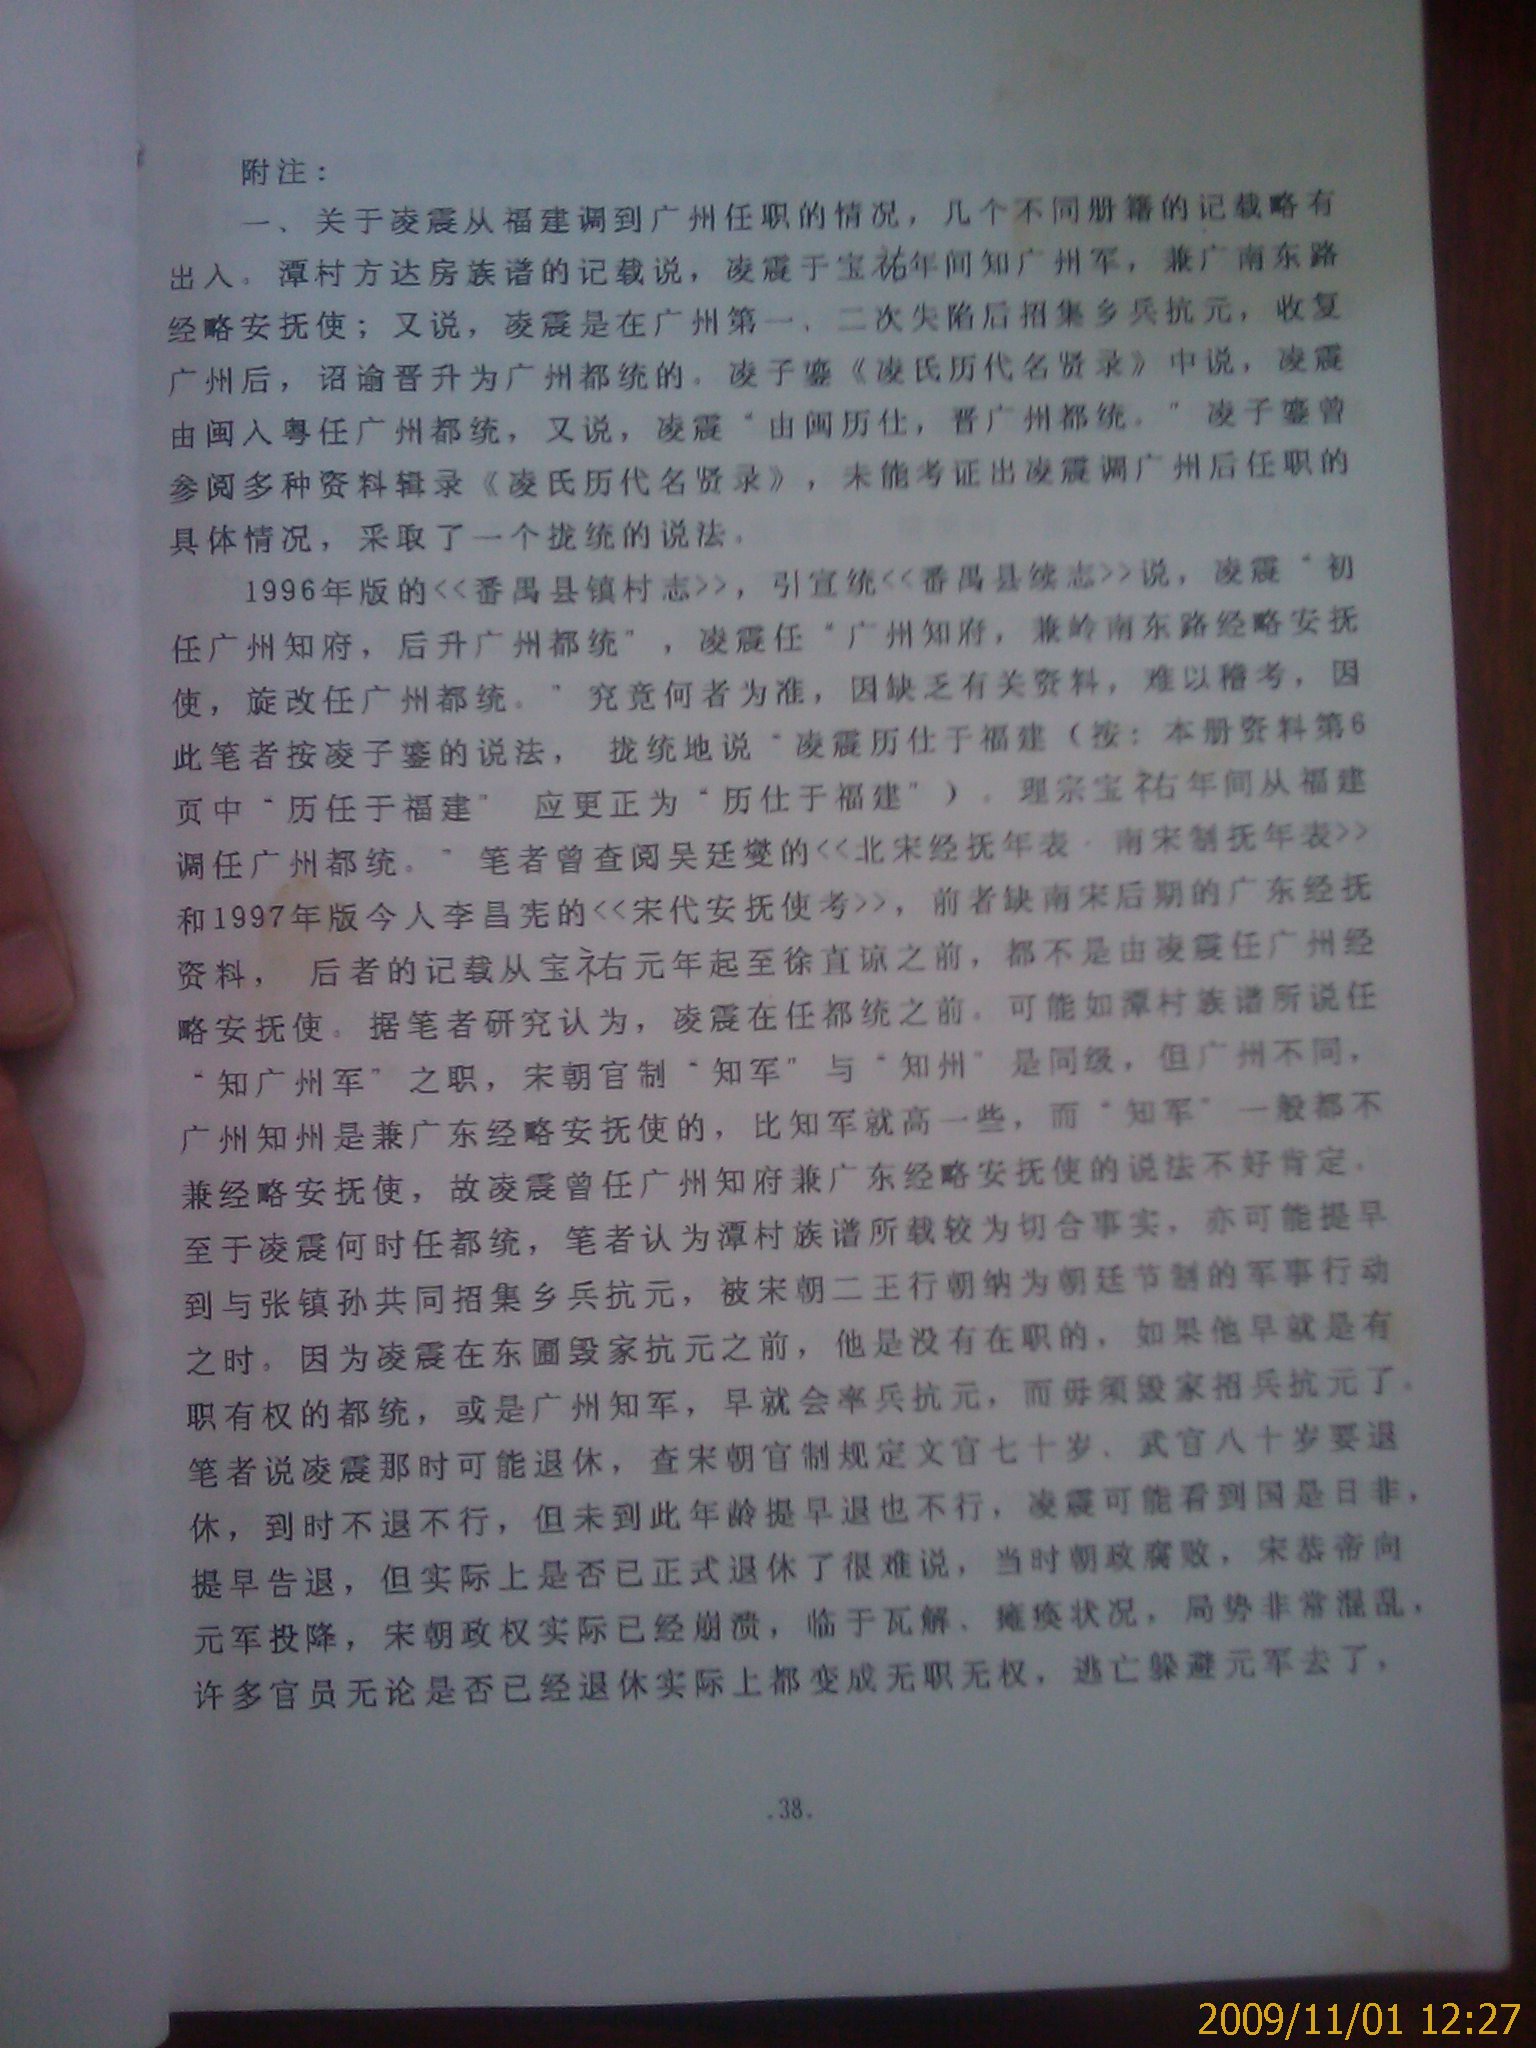 附注：
一、关于凌震从福建调到广州任职的情况，几个不同册籍的记载略有
出入。潭村方达房族谱的记载说，凌震于宝祐年间知广州军，兼广南东路
经略安抚使；又说，凌震是在广州第一、二次失陷后招集乡兵抗元，收复
广州后，诏谕晋升为广州都统的。凌子鎏《凌氏历代名贤录》中说，凌震
由闽入粤任广州都统，又说，凌震“由闽历仕，晋广州都统。”凌子鎏曾
参阅多种资料辑录《凌氏历代名贤录》，未能考证出凌震调广州后任职的
具体情况，采取了一个拢统的说法。
1996年版的<<番禺县镇村志>>，引宣统<<番禺县续志>>说，凌震“初
任广州知府，后升广州都统”，凌震任“广州知府，兼岭南东路经略安抚
使，旋改任广州都统。”究竟何者为准，因缺乏有关资料，难以稽考，因
此笔者按凌子鎏的说法， 拢统地说“凌震历仕于福建（按：本册资料第6
页中“历任于福建” 应更正为“历仕于福建”）。理宗宝祐年间从福建
调任广州都统。”笔者曾查阅吴廷燮的<<北宋经抚年表·南宋制抚年表>>
和1997年版今人李昌宪的<<宋代安抚使考>>，前者缺南宋后期的广东经抚
资料， 后者的记载从宝祐元年起至徐直谅之前，都不是由凌震任广州经
略安抚使。据笔者研究认为，凌震在任都统之前。可能如潭村族谱所说任
“知广州军”之职，宋朝官制“知军”与“知州”是同级，但广州不同，
广州知州是兼广东经略安抚使的，比知军就高一些，而“知军”一般都不
兼经略安抚使，故凌震曾任广州知府兼广东经略安抚使的说法不好肯定。
至于凌震何时任都统，笔者认为潭村族谱所载较为切合事实，亦可能提早
到与张镇孙共同招集乡兵抗元，被宋朝二王行朝纳为朝廷节制的军事行动
之时。因为凌震在东圃毁家抗元之前，他是没有在职的，如果他早就是有
职有权的都统，或是广州知军，早就会率兵抗元，而毋须毁家招兵抗元了。
笔者说凌震那时可能退休，查宋朝官制规定文官七十岁、武官八十岁要退
休，到时不退不行，但未到此年龄提早退也不行，凌震可能看到国是日非，
提早告退，但实际上是否已正式退休了很难说，当时朝政腐败，宋恭帝向
元军投降，宋朝政权实际已经崩溃，临于瓦解、瘫痪状况，局势非常混乱，
许多官员无论是否已经退休实际上都变成无职无权，逃亡躲避元军去了，
.38.
2009/11/01 12:27